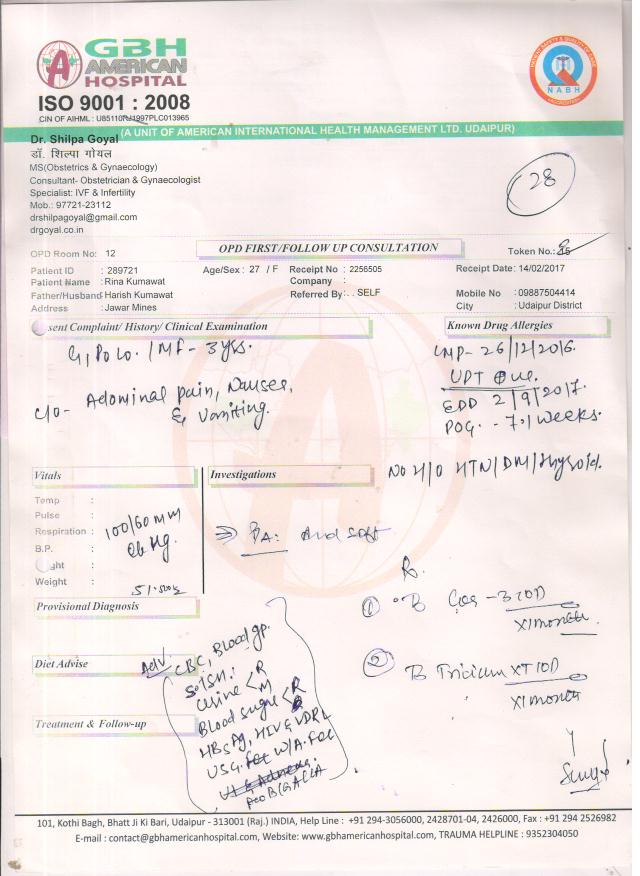 GBH
AMERICAN
HOSPITAL
ISO 9001 : 2008
CIN OF AIHML : U85110RJ1997PLC013965
(A UNIT OF AMERICAN INTERNATIONAL HEALTH MANAGEMENT LTD. UDAIPUR)
NABH
Dr. Shilpa Goyal
डॉ. शिल्पा गोयल
MS(Obstetrics & Gynaecology)
Consultant- Obstetrician & Gynaecologist
Specialist: IVF & Infertility
Mob.: 97721-23112
drshilpagoyal@gmail.com
drgoyal.co.in
28
OPD Room No: 12
OPD FIRST/FOLLOW UP CONSULTATION
Token No.:
Patient ID : 289721 Age/Sex : 27 / F Receipt No : 2256505 Receipt Date: 14/02/2017
Patient Name : Rina Kumawat Company :
Father/Husband: Harish Kumawat Referred By: . SELF Mobile No : 09887504414
Address : Jawar Mines City : Udaipur District
sent Complaint/ History/ Clinical Examination
Known Drug Allergies
G1P0L0. / MF - 3yrs.
LMP- 26/12/2016.
UPT
EDD 2/9/2017.
POG. - 7.1 weeks.
c/o- Adominal pain, Nausea,
& Vomiting.
NO H/O HTN/DM/thyroid.
Vitals
Investigations
Temp :
Pulse :
Respiration :
B.P. :
ght :
Weight :
100/60 mm
Hg.
P/A: soft
Rx.
① 
X1month.
② 
X1month
Provisional Diagnosis
Diet Advise
Treatment & Follow-up
Adv. CBC, Blood gp.
S.TSH.
Urine < R
M
Blood sugar < R
HBsAg, HIV & VDRL
USG
101, Kothi Bagh, Bhatt Ji Ki Bari, Udaipur - 313001 (Raj.) INDIA, Help Line : +91 294-3056000, 2428701-04, 2426000, Fax : +91 294 2526982
E-mail : contact@gbhamericanhospital.com, Website: www.gbhamericanhospital.com, TRAUMA HELPLINE : 9352304050